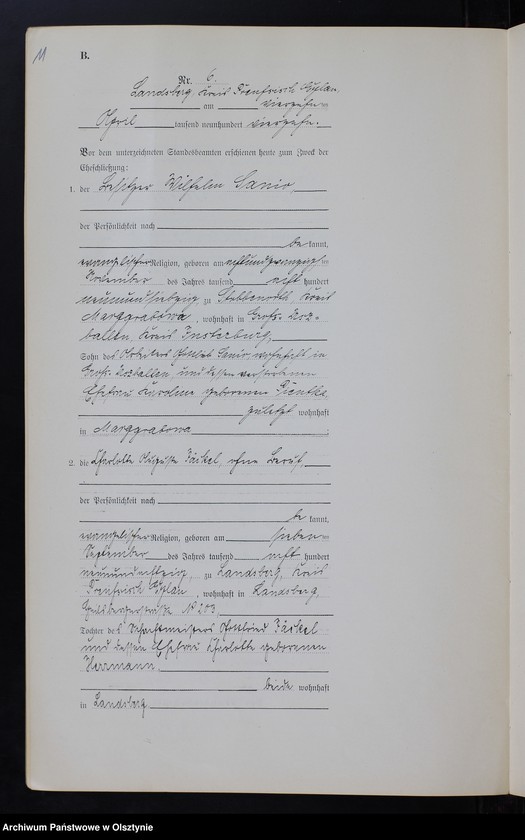 11
B.
Nr. 6.
Landsberg Kreis Preußisch Eylau,
am vierzehn
April tausend neunhundert vierzehn.
Vor dem unterzeichneten Standesbeamten erschienen heute zum Zweck der
Eheschließung:
1. der Besitzer Wilhelm Sanio,
der Persönlichkeit nach
be kannt,
evangelischer Religion, geboren am achtundzwanzigsten
November des Jahres tausend acht hundert
neunundsiebzig zu Kreis
Marggrabowa, wohnhaft in Groß
ballen, Kreis Insterburg,
Sohn des Arbeiters Gottlieb Sanio, wohnhaft in
Groß und dessen verstorbenen
Ehefrau Karoline geborenen
zuletzt wohnhaft
in Marggrabowa
2. die Charlotte Auguste Jäckel, ohne Beruf,
der Persönlichkeit nach
be kannt,
evangelischer Religion, geboren am sieben
September des Jahres tausend acht hundert
neunundachtzig, zu Landsberg, Kreis
Preußisch Eylau, wohnhaft in Landsberg,
Heilsbergerstraße No 203,
Tochter des Gottfried Jäckel
und dessen Ehefrau Charlotte geborenen
Herrmann,
beide wohnhaft
in Landsberg
Archiwum Państwowe w Olsztynie